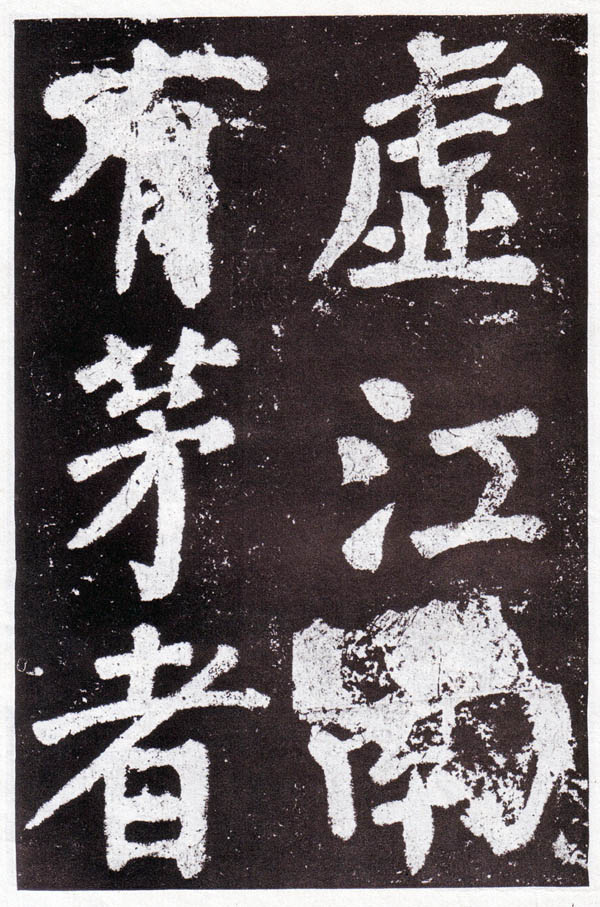 虚江南
有茅者